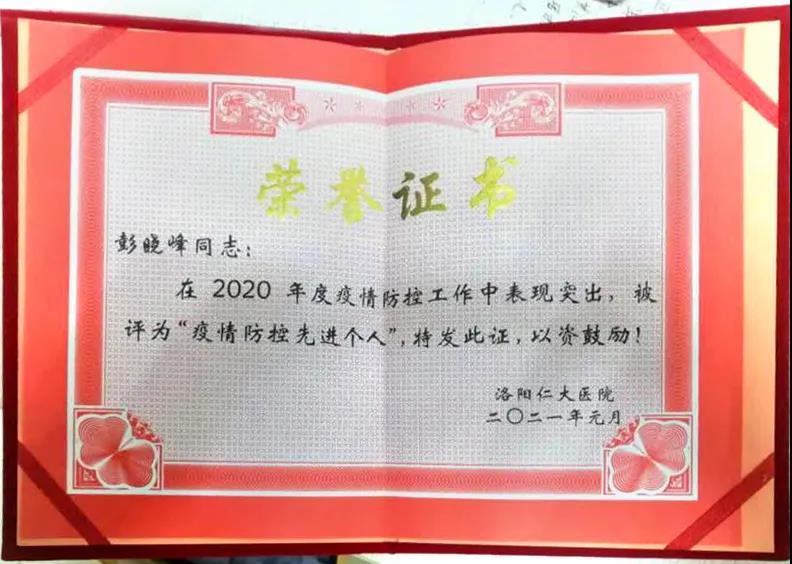 荣誉证书
彭晓峰同志：
在2020年度疫情防控工作中表现突出，被
评为“疫情防控先进个人”，特发此证，以资鼓励！
洛阳仁大医院
二〇二一年元月